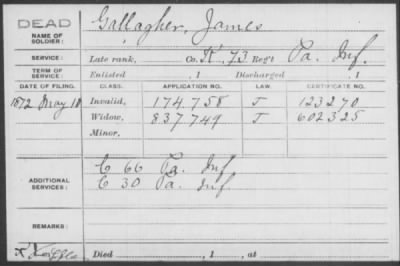 DEAD
NAME OF SOLDIER: Gallagher, James
SERVICE: Late rank, Co. K 73 Reg't Pa. Inf.
TERM OF SERVICE: Enlisted , 1 Discharged , 1
DATE OF FILING. CLASS. APPLICATION NO. LAW. CERTIFICATE NO.
1872 May 10 Invalid, 174,758 J 123270
Widow, 837749 J 602325
Minor,
ADDITIONAL SERVICES: C 66 Pa. Inf
C 30 Pa. Inf.
REMARKS:
Died , 1 , at